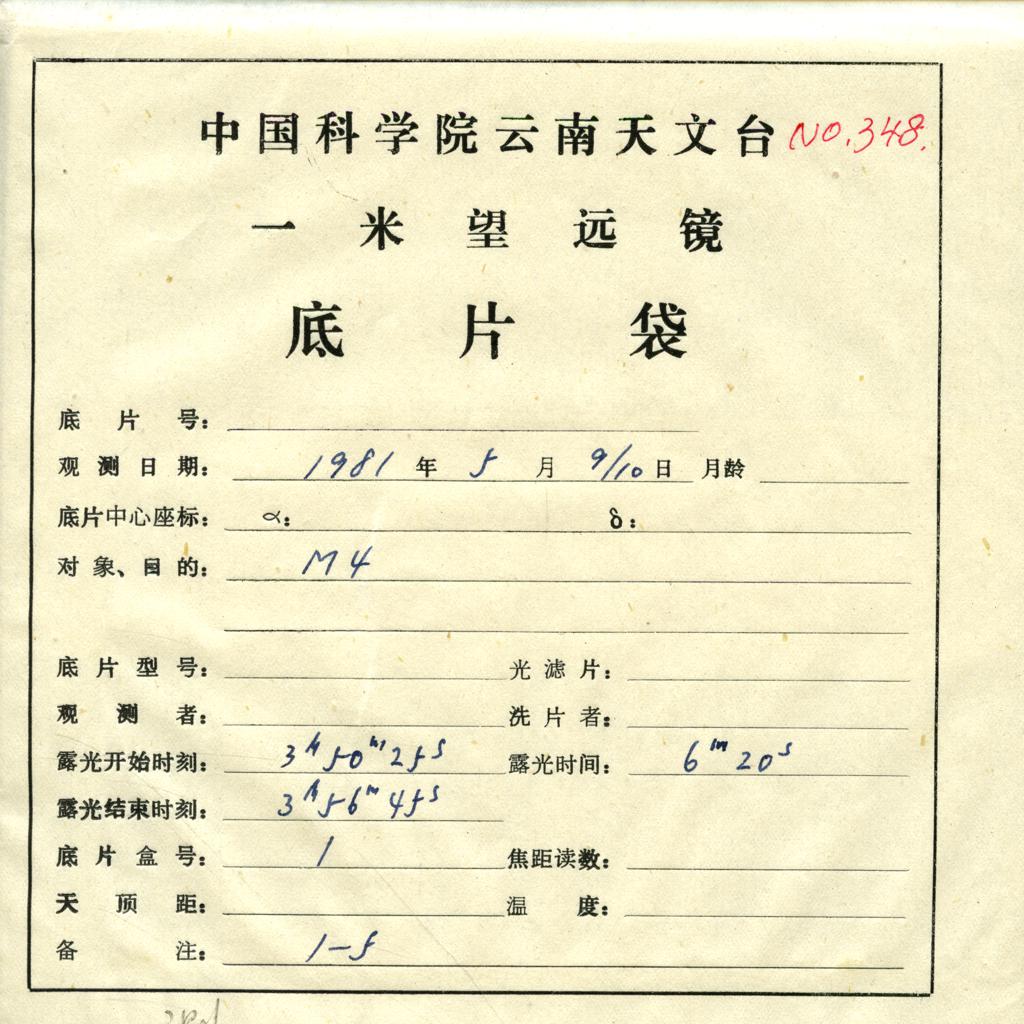 中国科学院云南天文台 NO.348.
一米望远镜
底片袋
底片号:
观测日期: 1981 年 5 月 9/10 日 月龄
底片中心座标: α: δ:
对象、目的: M4
底片型号: 光滤片:
观测者: 洗片者:
露光开始时刻: 3h50m25s 露光时间: 6m20s
露光结束时刻: 3h56m45s
底片盒号: 1 焦距读数:
天顶距: 温度:
备注: 1-5